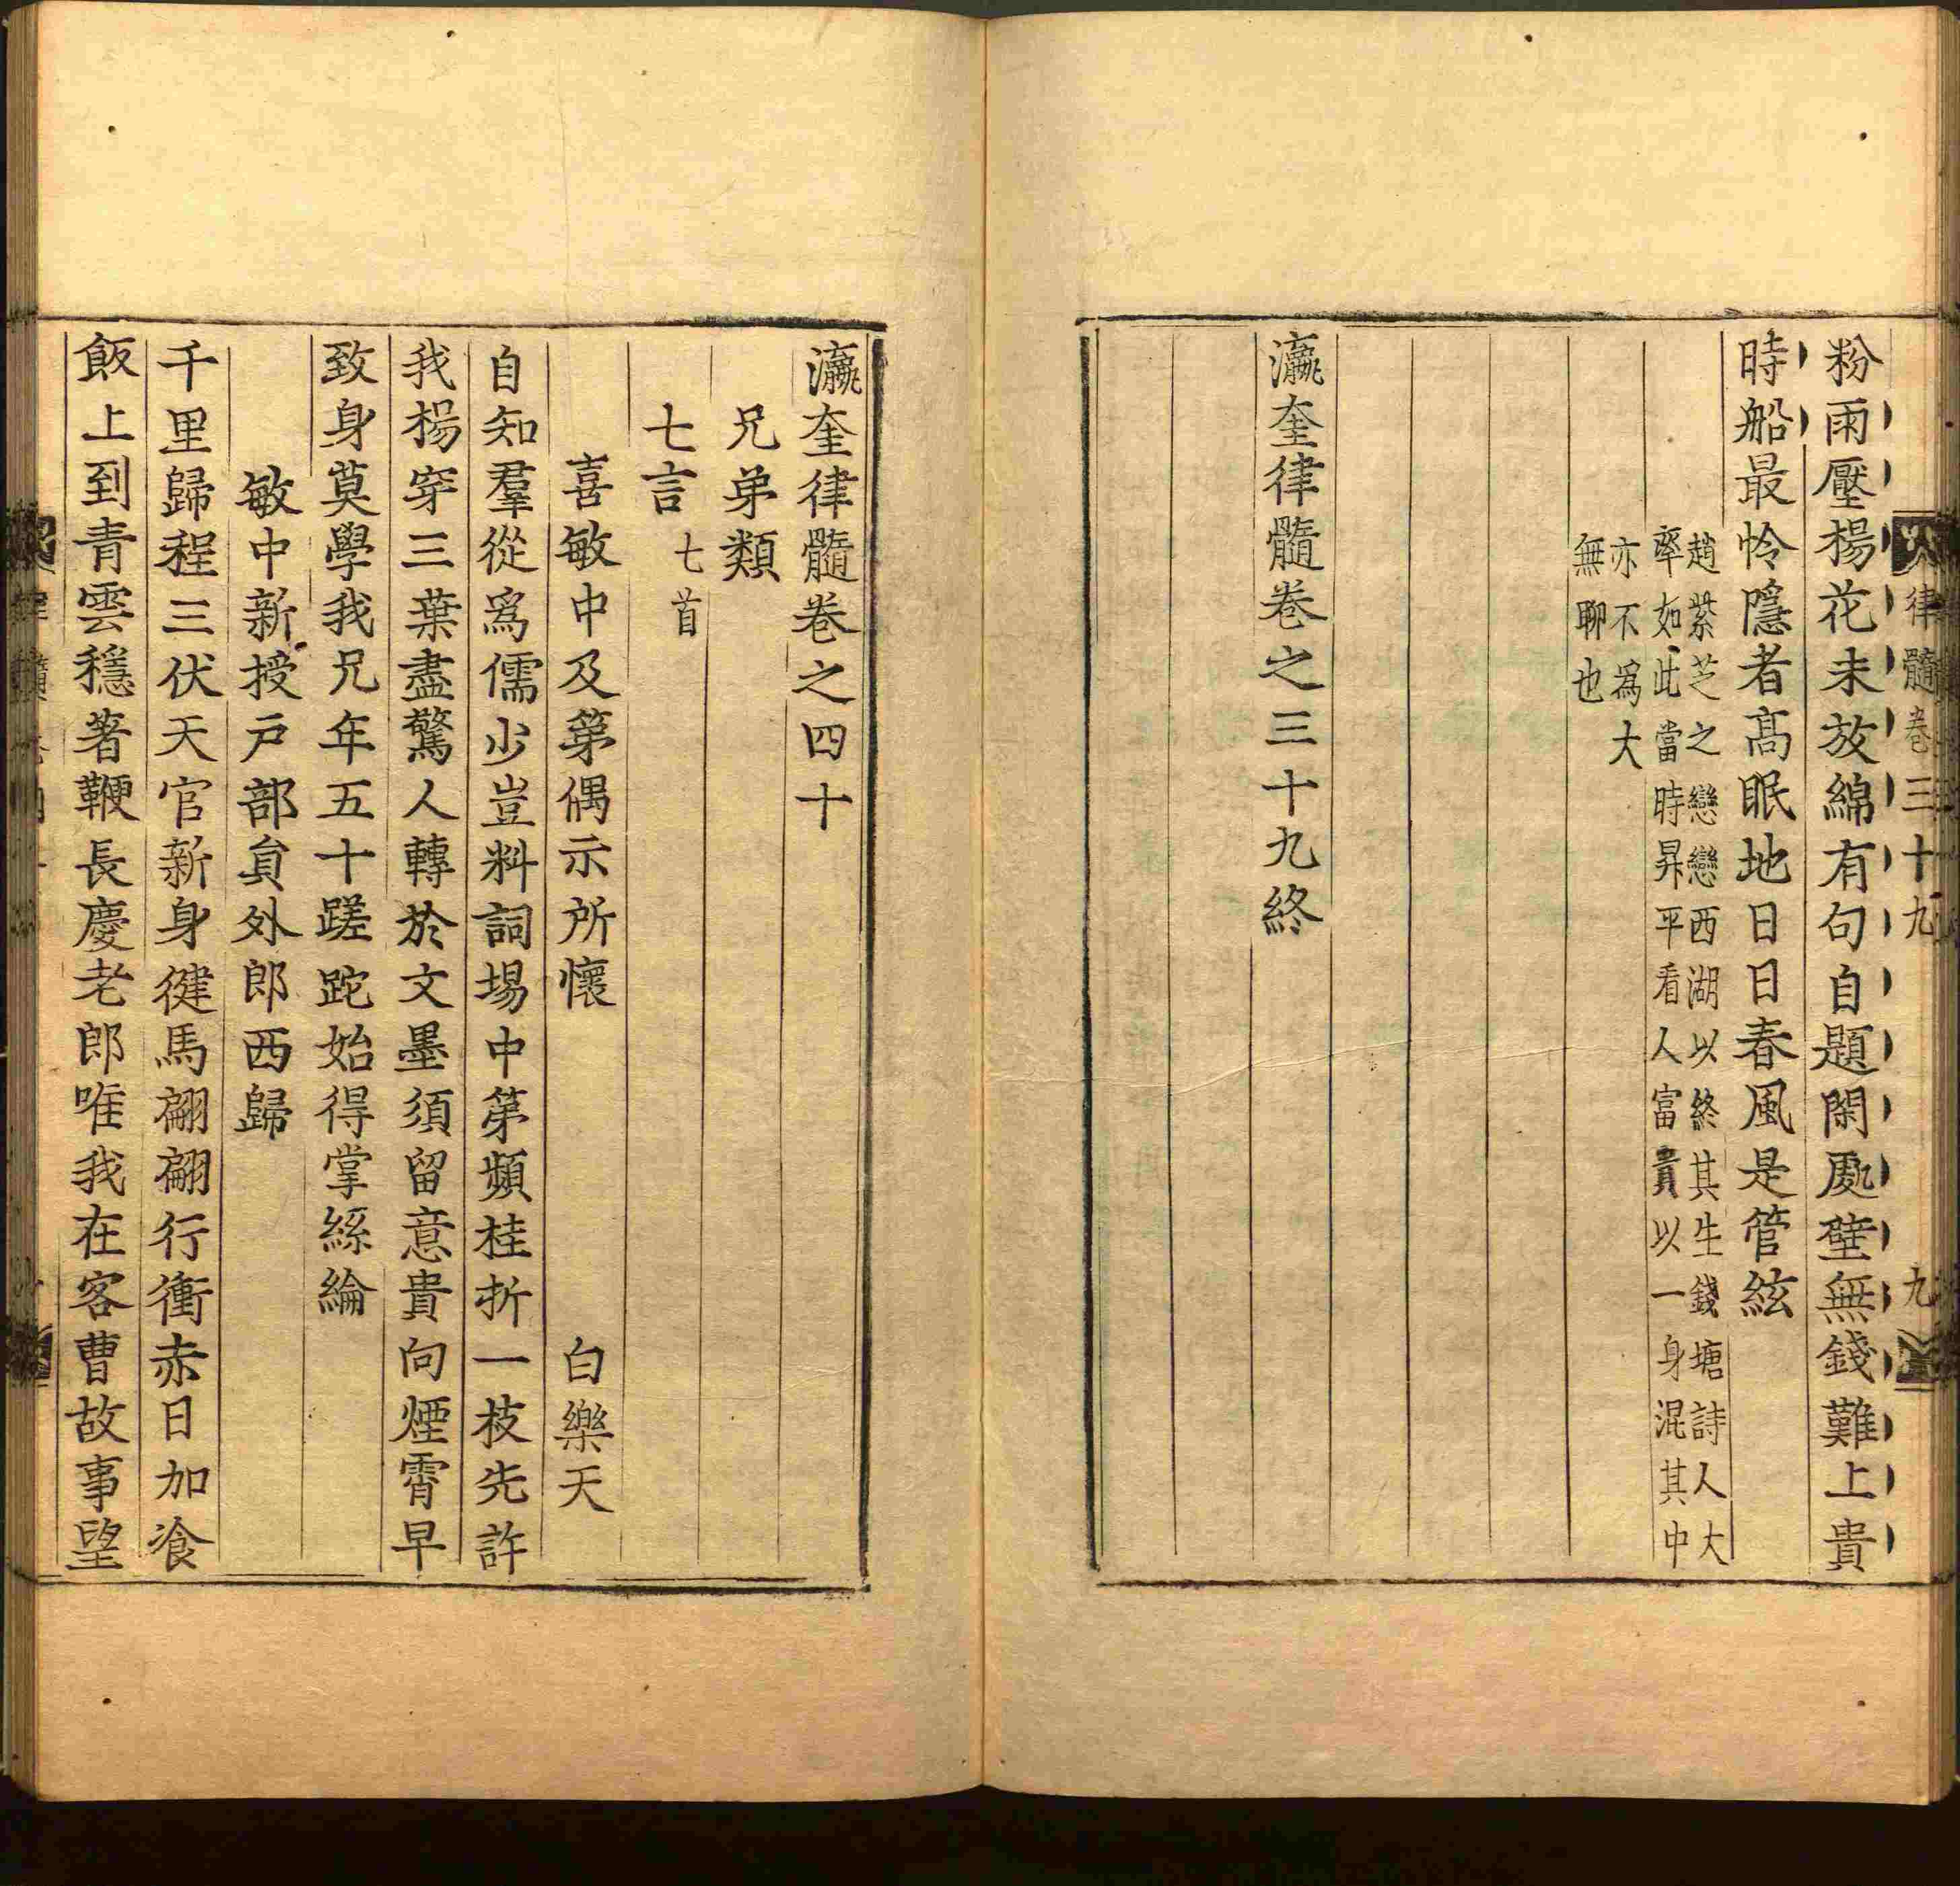 律髓卷三十九 九
粉雨壓楊花未放綿有句自題閑處壁無錢難上貴
時船最怜隱者髙眠地日日春風是管絃
趙紫芝之戀戀西湖以終其生錢塘詩人大
率如此當時昇平看人富貴以一身混其中
亦不爲大
無聊也
瀛奎律髓卷之三十九終
瀛奎律髓卷之四十
兄弟類
七言 七首
喜敏中及第偶示所懷 白樂天
自知羣從爲儒少豈料詞場中第頻桂折一枝先許
我楊穿三葉盡驚人轉於文墨須留意貴向煙霄早
致身莫學我兄年五十蹉跎始得掌絲綸
敏中新授戸部貟外郎西歸
千里歸程三伏天官新身徤馬翩翩行衝赤日加飡
飯上到青雲穩著鞭長慶老郎唯我在客曹故事望